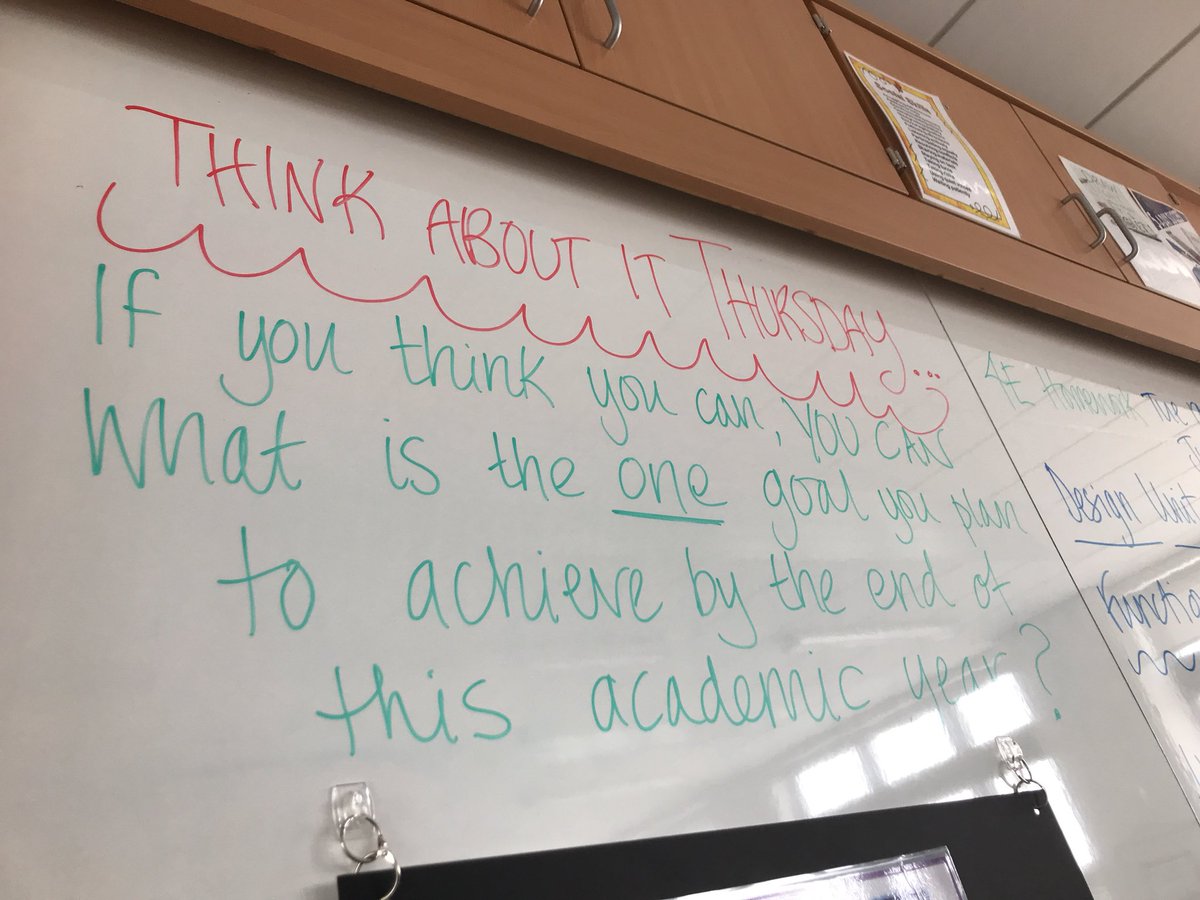 THINK ABOUT IT THURSDAY...
If you think you can, YOU CAN
What is the one goal you plan
to achieve by the end of
this academic year?
4E Homework Tue
Design Unit
Social Skills
Waiting patiently